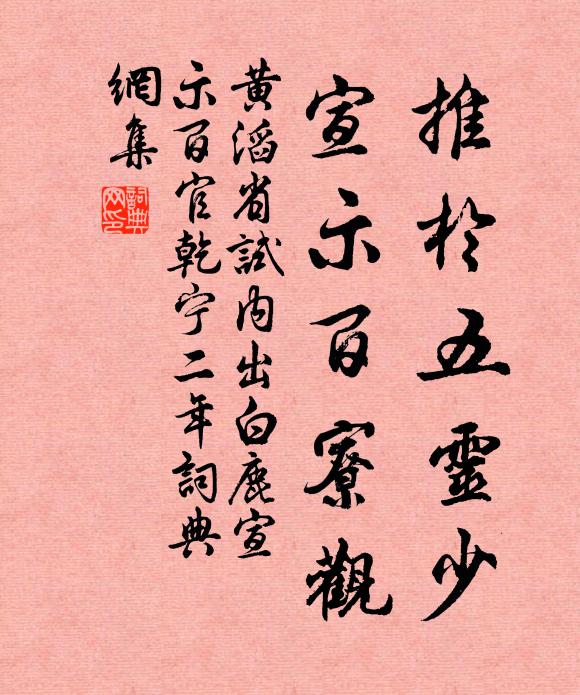 推於五靈少
宣示百寮觀
黃滔省試內出白鹿宣
示百官乾宁二年詞典
網集
詞典网印